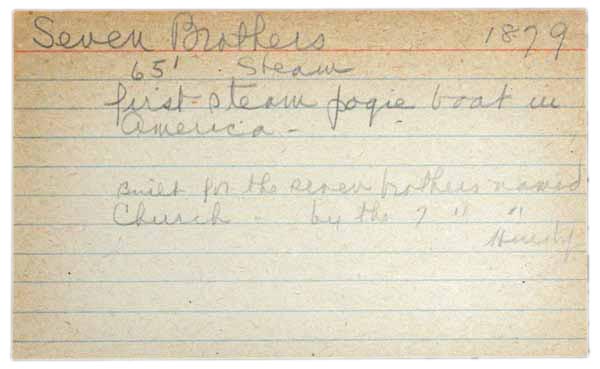 Seven Brothers 1879
65' Steam
first steam pogie boat in
America -
built for the seven brothers named
Church - by the 7 " "